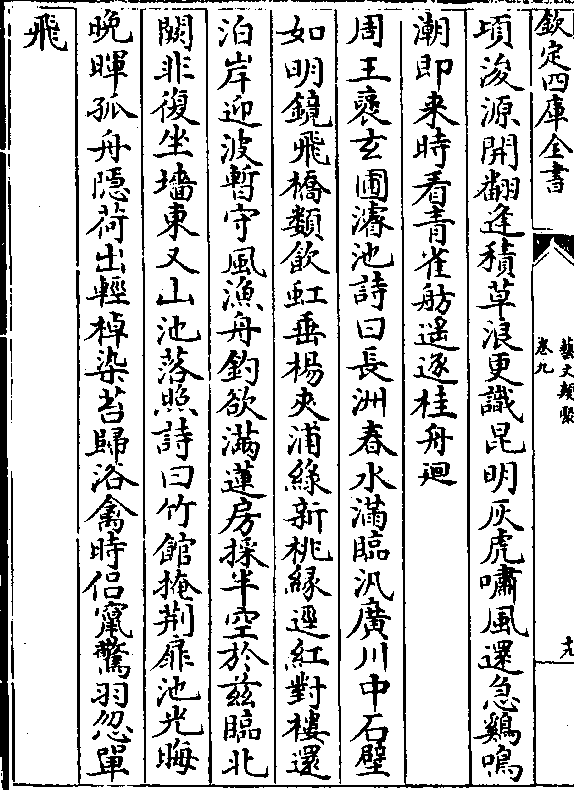 欽定四庫全書
藝文類聚
卷九
十九
頃浚源開翻逢積草浪更識昆明灰虎嘯風還急鷄鳴
潮即来時看青雀舫遥逐桂舟迴
周王襃玄圃濬池詩曰長洲春水滿臨汎廣川中石壁
如明鏡飛橋類飲虹垂楊夾浦綠新桃縁逕紅對樓還
泊岸迎波暫守風漁舟釣欲滿蓮房採半空於兹臨北
闕非復坐墻東又山池落照詩曰竹館掩荆扉池光晦
晩暉孤舟隠荷出輕棹染苔歸浴禽時侣竄驚羽忽單
飛